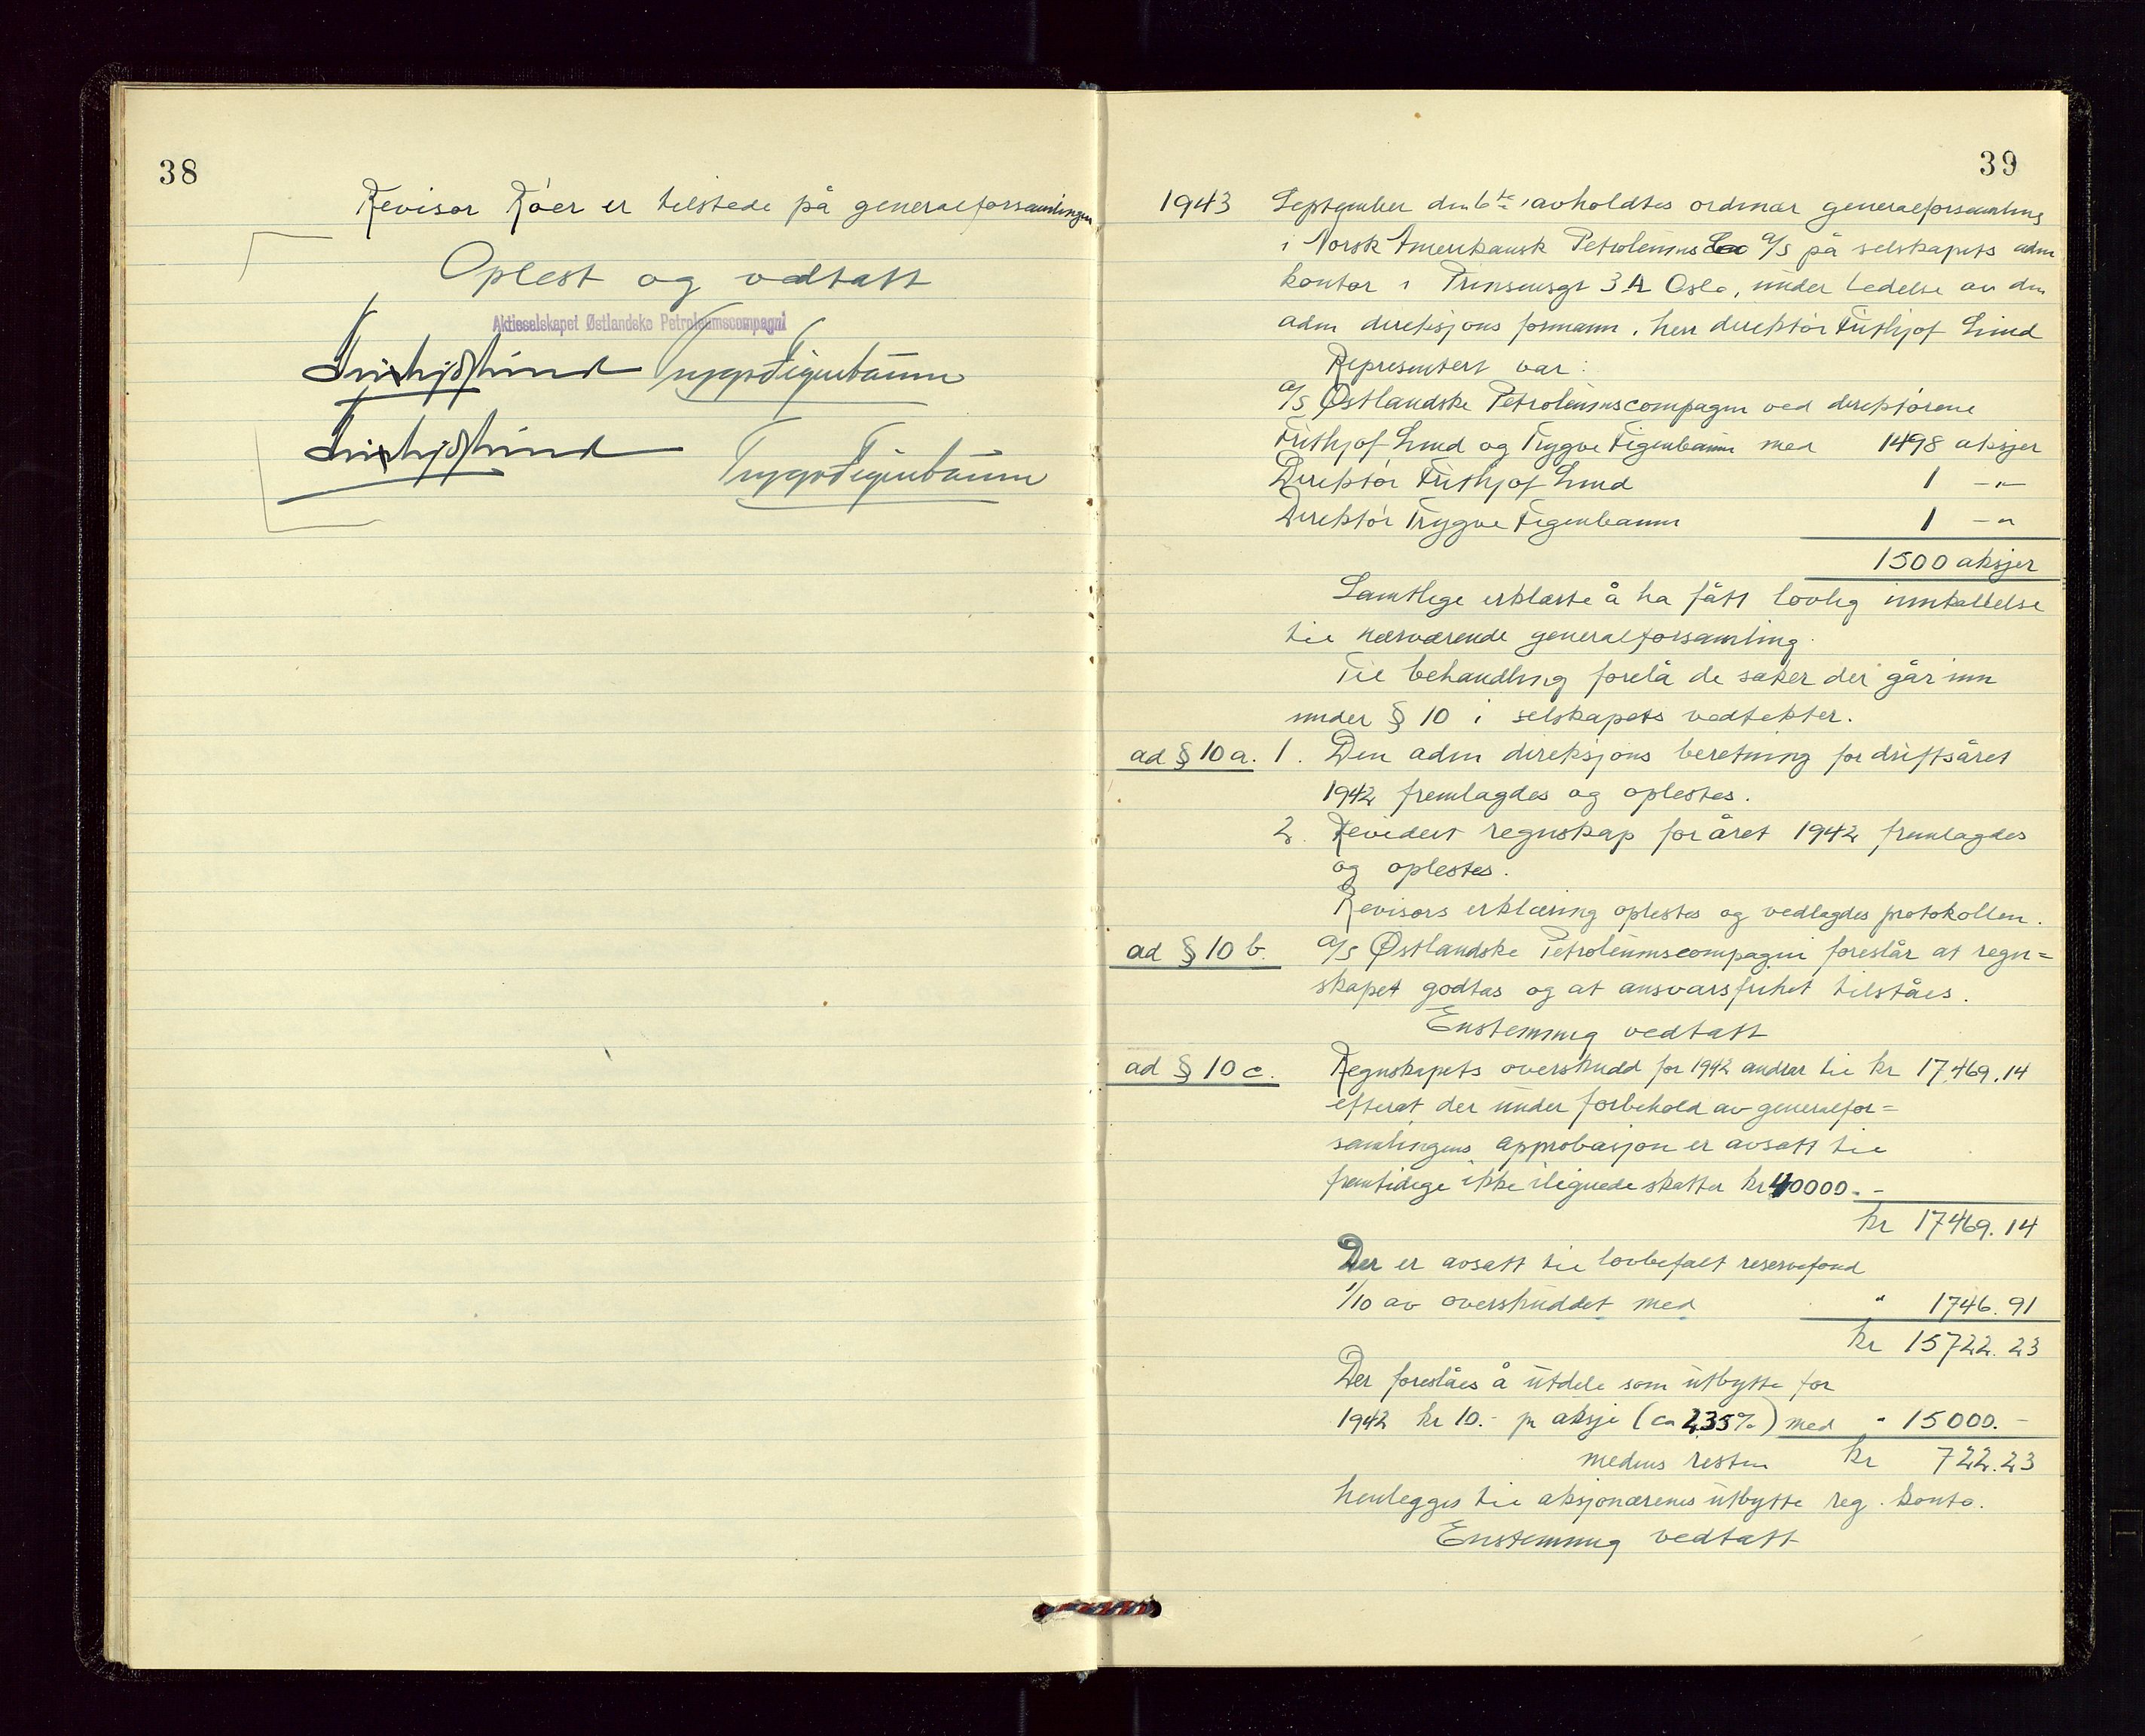 38
Revisor Röer er tilstede på generalforsamlingen
Oplest og vedtatt
Aktieselskapet Østlandske Petroleumscompagni
Frithjof Lind Trygve Figenbaum
Frithjof Lind Trygve Figenbaum
39
1943 September den 6te avholdtes ordinær generalforsamling
i Norsk Amerikansk Petroleums Co a/s på selskapets adm
kontor i Prinsensgt 3 A Oslo, under ledelse av den
adm direksjons formann, herr direktör Frithjof Lind
Representert var:
a/s Østlandske Petroleumscompagni ved direktörene
Frithjof Lind og Trygve Figenbaum med 1498 aksjer
Direktör Frithjof Lind 1 -"-
Direktör Trygve Figenbaum 1 -"
1500 aksjer
Samtlige erklærte å ha fått lovlig innkallelse
til nærværende generalforsamling.
Til behandling forelå de saker der går inn
under § 10 i selskapets vedtekter.
ad § 10 a. 1. Den adm direksjons beretning for driftsåret
1942 fremlagdes og oplestes.
2. Revidert regnskap for året 1942 fremlagdes
og oplestes.
Revisors erklæring oplestes og vedlagdes protokollen.
ad § 10 b. a/s Østlandske Petroleumscompagni foreslår at regn=
skapet godtas og at ansvarsfrihet tilståes.
Enstemmig vedtatt
ad § 10 c. Regnskapets overskudd for 1942 andrar til kr 17.469.14
efterat der under forbehold av generalfor=
samlingens approbasjon er avsatt til
fremtidige ikke ilignede skatter kr 40000.-
kr 17469.14
Der er avsatt til lovbefalt reservefond
1/10 av overskuddet med " 1746.91
kr 15722.23
Der foreslåes å utdele som utbytte for
1942 kr 10.- pr aksje (ca 2,35%) med " 15000.-
medens resten kr 722.23
henlegges til aksjonærenes utbytte reg. konto.
Enstemmig vedtatt